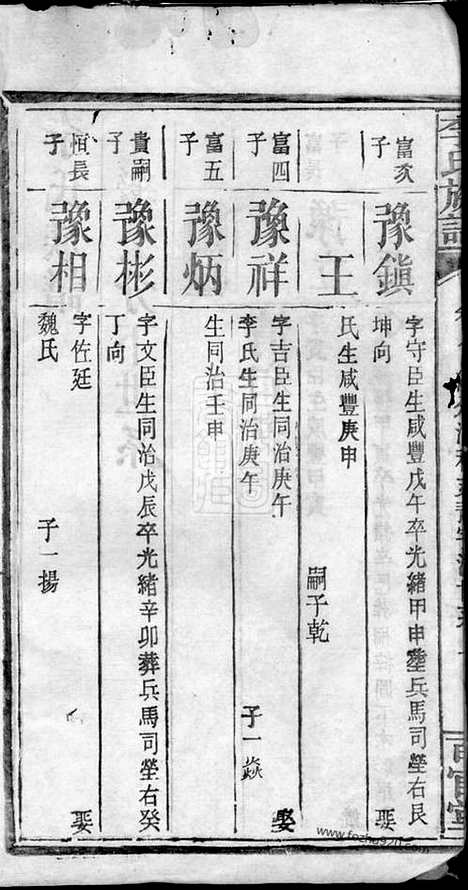 李氏族譜
百官堂
富次子
豫鎮
字守臣生咸豐戊午卒光緒甲申塟兵馬司塋右艮
坤向
娶
王
氏生咸豐庚申
嗣子乾
富四子
豫祥
字吉臣生同治庚午
娶
李氏生同治庚午
子一焱
富五子
豫炳
生同治壬申
貴嗣子
豫彬
字文臣生同治戊辰卒光緒辛卯葬兵馬司塋右癸
丁向
恒長子
豫相
字佐廷
娶
魏氏
子一揚
www.fozhu920.com